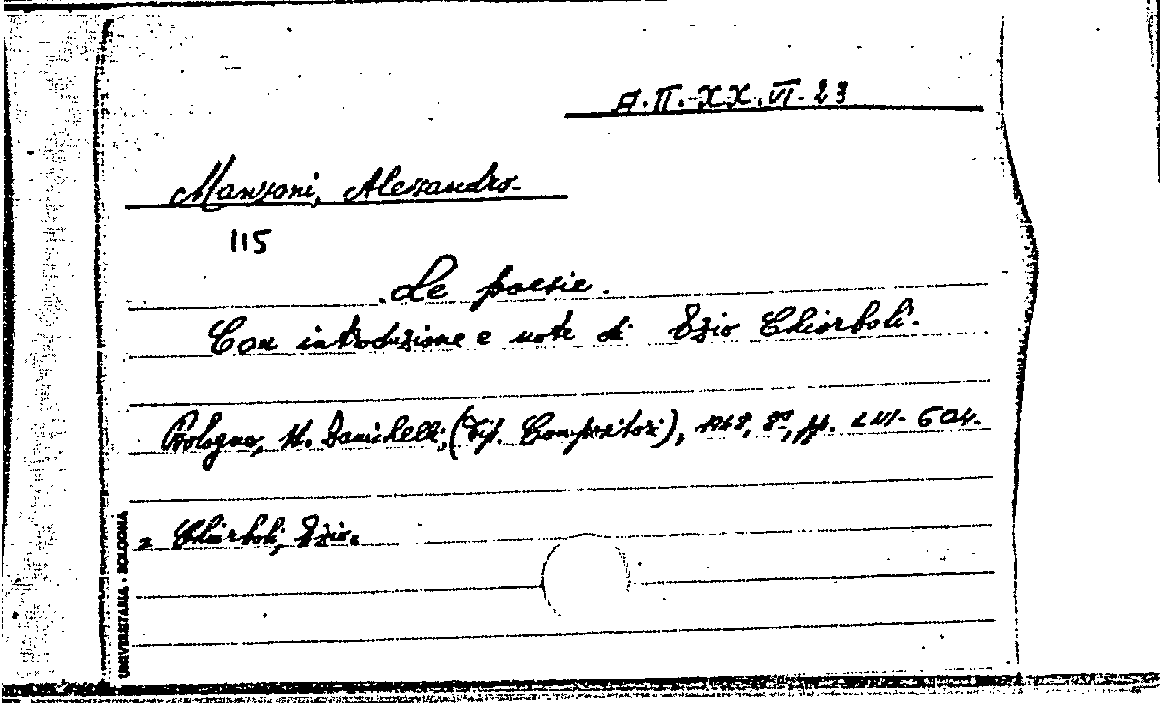 A.II.XX.VI.23
Manzoni, Alessandro.
115
Le poesie.
Con introduzione e note di Ezio Chiorboli.
Bologna, N. Zanichelli, (Tip. Compositori), 1948, 8º, pp. LVI-604.
2 Chiorboli, Ezio.
UNIVERSITARIA - BOLOGNA